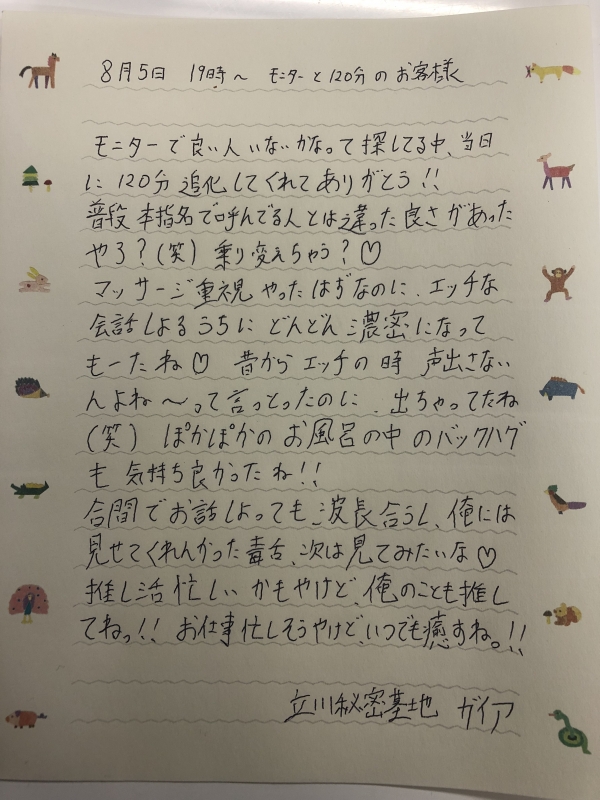 8月5日 19時〜 モニターと120分のお客様
モニターで良い人いないかなって探してる中、当日
に120分追化してくれてありがとう!!
普段本指名で呼んでる人とは違った良さがあった
やろ?(笑) 乗り変えちゃう?♡
マッサージ重視やったはずなのに、エッチな
会話しよるうちにどんどん濃密になって
もーたね♡ 昔からエッチの時 声出さない
んよね〜って言っとったのに、出ちゃってたね
(笑) ぽかぽかのお風呂の中のバックハグ
も気持ち良かったね!!
合間でお話しよっても波長合うし、俺には
見せてくれんかった毒舌、次は見てみたいな♡
推し活忙しいかもやけど、俺のことも推し
てねっ!! お仕事忙しそうやけど、いつでも癒すね。!!
立川秘密基地 ガイア